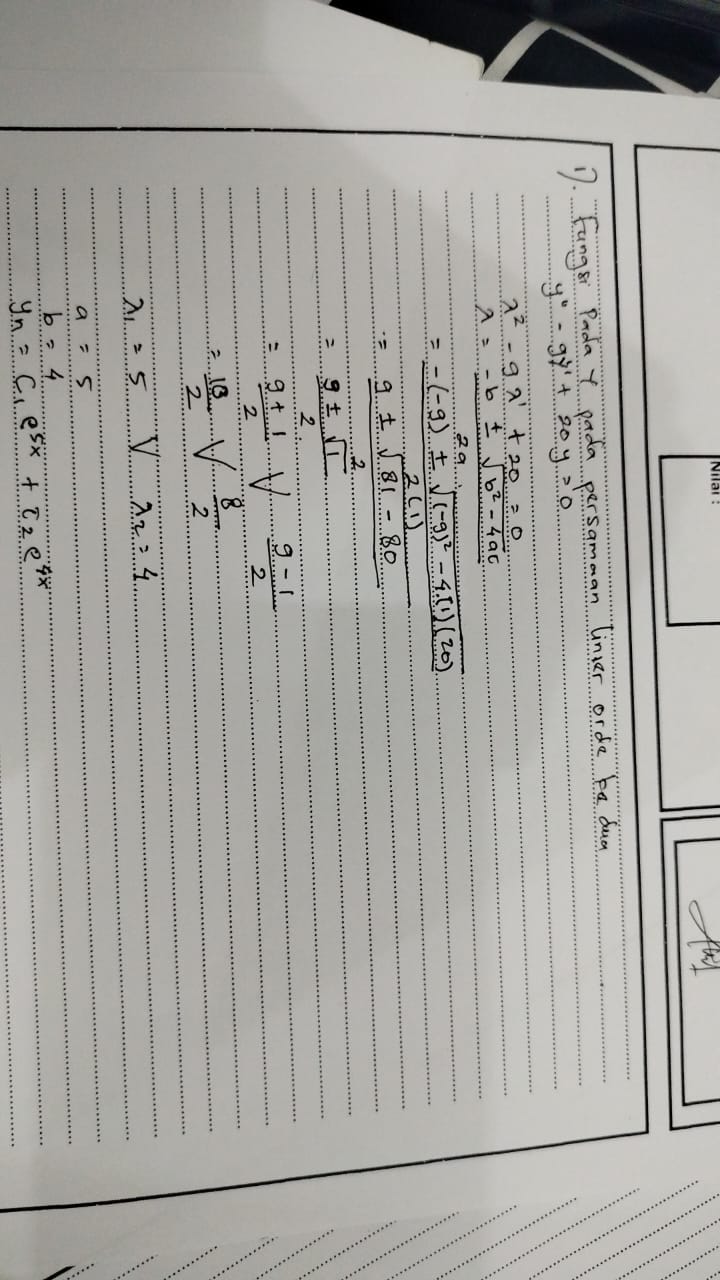 Nilai :
1). Fungsi Pada Y pada persamaan linier orde ke dua
y" - 9y' + 20y = 0
λ² - 9λ' + 20 = 0
λ = -b ± √b² - 4ac / 2a
= -(-9) ± √(-9)² - 4.(1)(20) / 2(1)
= 9 ± √81 - 80 / 2
= 9 ± √1 / 2
= 9 + 1 / 2 V 9 - 1 / 2
= 10 / 2 V 8 / 2
λ₁ = 5 V λ₂ = 4
a = 5
b = 4
yn = C₁ e⁵ˣ + C₂ e⁴ˣ